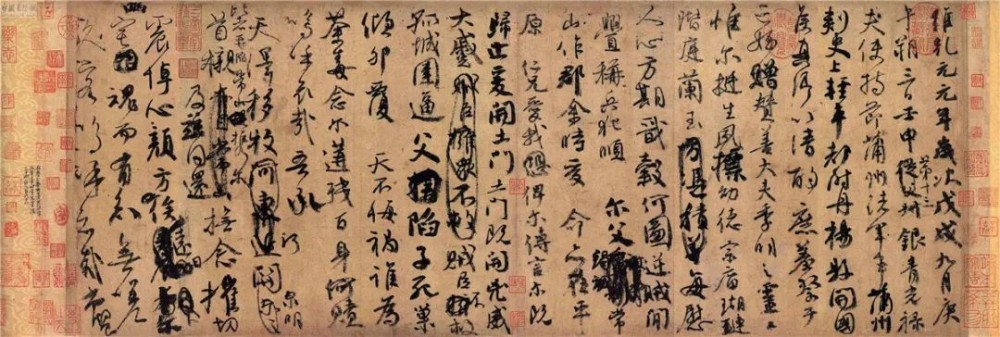 維乾元元年歲次戊戌九月庚
午朔三日壬申第十三叔銀青光祿
夫使持節蒲州諸軍事蒲州
刺史上輕車都尉丹楊縣開國
侯真卿以清酌庶羞祭于
亡姪贈贊善大夫季明之靈曰
惟爾挺生夙標幼德宗廟瑚璉
階庭蘭玉方憑積善每慰
人心方期戩穀何圖逆賊閒
釁稱兵犯順爾父竭誠常
山作郡余時受命亦在平
原仁兄愛我俾爾傳言爾既
歸止爰開土門土門既開凶威
大蹙賊臣擁眾不救賊臣不救
孤城圍逼父陷子死巢
傾卵覆天不悔禍誰為
荼毒念爾遘殘百身何贖
嗚呼哀哉吾承
天澤移牧河東近河關泉明
比者再陷常山攜爾
首櫬及茲同還撫念摧切
震悼心顏方俟遠日
宅魂而有知無嗟
久客嗚呼哀哉尚饗